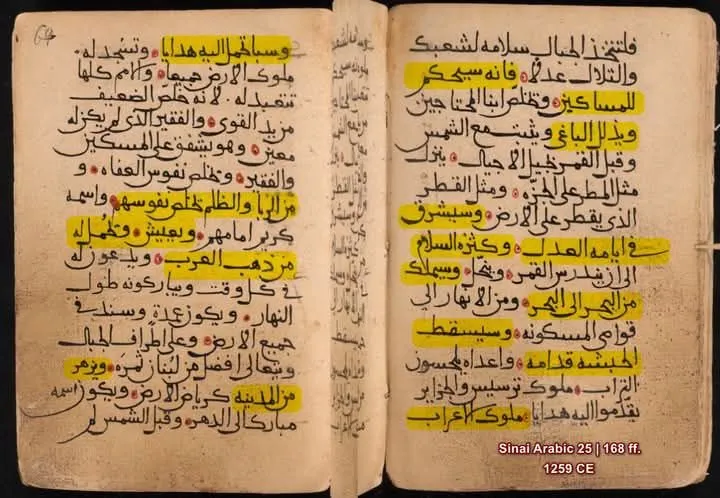 فلتتخذ الجبال سلامه لشعبك
والتلال عدلا فانه سيحكم
للمساكين وتخلص ابنا المحتاجين
ويذلل الباغي ويثبت مع الشمس
وقبل القمر جيل الاجيال ينزل
مثل المطر على الجزه ومثل القطر
الذي يقطر على الارض وسيشرق
في ايامه العدل وكثرة السلام
الى ان يندرس القمر ويتخلى وسيملك
من البحر الى البحر ومن الانهار الى
قواصي المسكونه وسيسقط
الحبشه قدامه واعداه يلحسون
التراب ملوك ترسيس والجزاير
يقدموا اليه هدايا ملوك الاعراب
وسبا تحمل اليه هدايا وتسجد له
ملوك الارض جميعا والامم كلها
تتعبد له لانه خلص الضعيف
من يد القوي والفقير الذي لم يكن له
معين وهو يشفق على المسكين
والفقير وتخلص نفوس الضعفاه و
من الربا والظلم تخلص نفوسهم واسمه
كريم امامهم ويعيش وتحمل له
من ذهب العرب ويدعون له
في كل وقت ويباركونه طول
النهار ويكون عدة وسند في
جميع الارض وعلى اطراف الجبال
ويتعالى افضل من لبنان ثمره ويزهر
من المدينه كرياض الارض ويكون اسمه
مباركا الى الدهر وقبل الشمس لم
Sinai Arabic 25 | 168 ff.
1259 CE